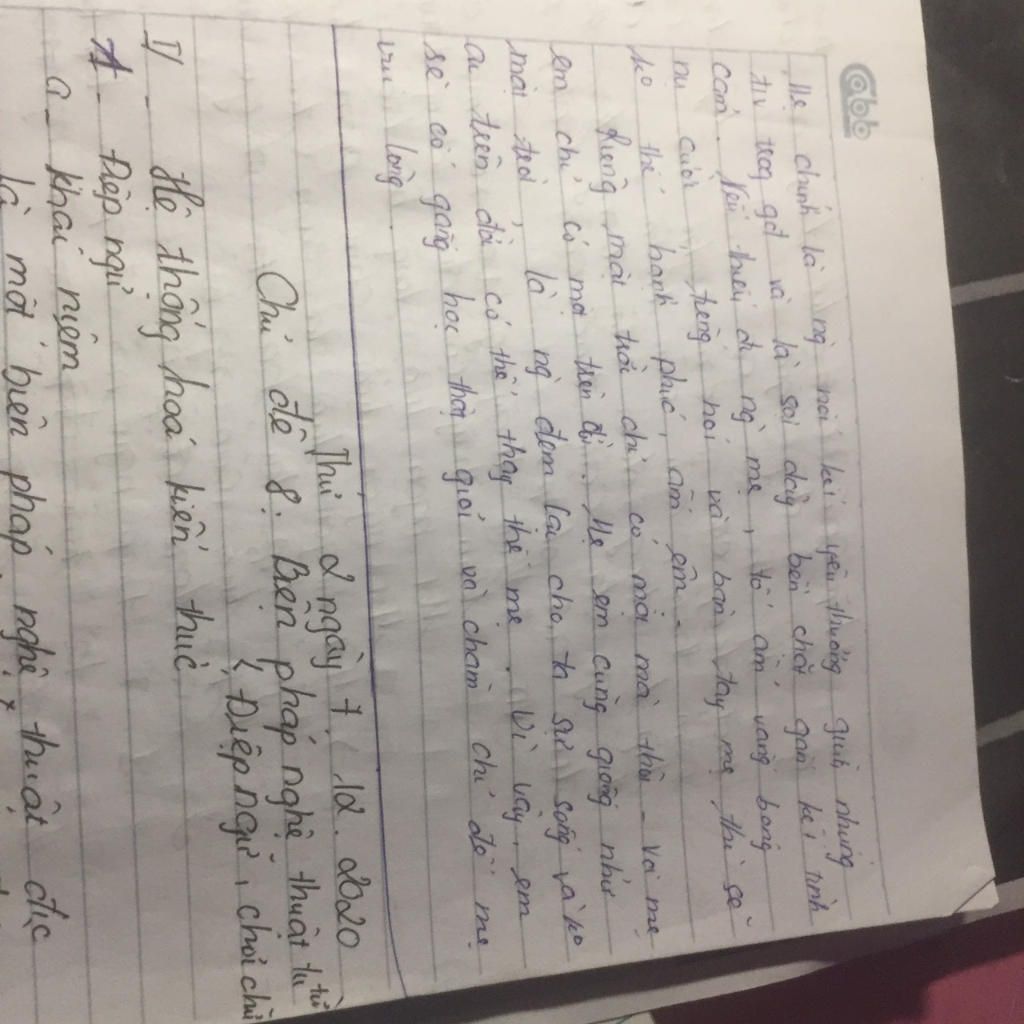 Cabb
Mẹ chính là ng nối kết yêu thương giữa những
tv trog gđ và là sợi dây bền chặt gắn kết tình
cảm. Nếu thiếu đi ng mẹ, tổ ấm vắng bóng
nụ cười, tiếng nói và bàn tay mẹ thì sẽ
ko thể hạnh phúc, ấm êm.
Luông mặt trời chỉ có một mà thôi - và mẹ
em chỉ có một trên đời. Mẹ em cũng giống như
mặt trời, là ng đem lại cho ta sự sống và ko
ai trên đời có thể thay thế mẹ. Vì vậy, em
sẽ cố gắng học thật giỏi và chăm chỉ để mẹ
vui lòng
Thứ 2 ngày 7.12.2020
Chủ đề 8: Biện pháp nghệ thuật tu từ
( Điệp ngữ, chơi chữ
I/ - Hệ thống hoá kiến thức
A - Điệp ngữ
a - khái niệm
là một biện pháp nghệ thuật đc